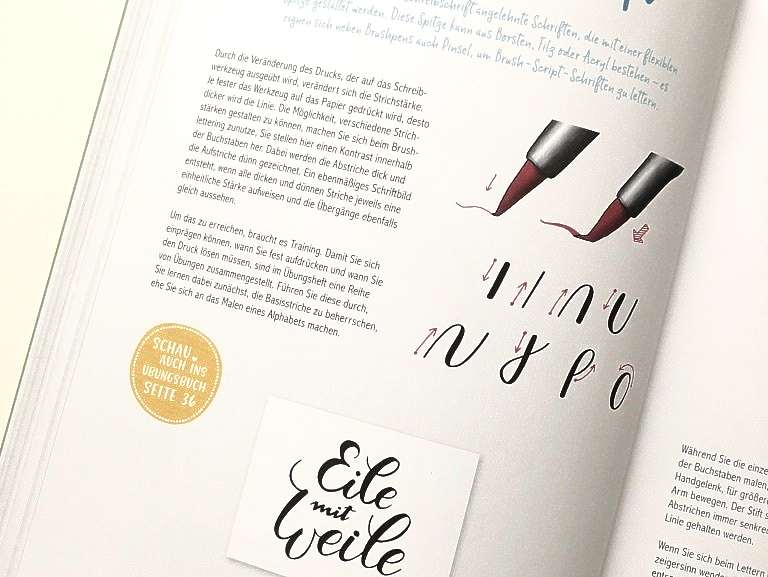 schreibschrift angelehnte Schriften, die mit einer flexiblen
Spitze gestaltet werden. Diese Spitze kann aus Borsten, Filz oder Acryl bestehen – es
eignen sich neben Brushpens auch Pinsel, um Brush-Script-Schriften zu lettern.
Durch die Veränderung des Drucks, der auf das Schreib-
werkzeug ausgeübt wird, verändert sich die Strichstärke.
Je fester das Werkzeug auf das Papier gedrückt wird, desto
dicker wird die Linie. Die Möglichkeit, verschiedene Strich-
stärken gestalten zu können, machen Sie sich beim Brush-
lettering zunutze, Sie stellen hier einen Kontrast innerhalb
der Buchstaben her. Dabei werden die Abstriche dick und
die Aufstriche dünn gezeichnet. Ein ebenmäßiges Schriftbild
entsteht, wenn alle dicken und dünnen Striche jeweils eine
einheitliche Stärke aufweisen und die Übergänge ebenfalls
gleich aussehen.
Um das zu erreichen, braucht es Training. Damit Sie sich
einprägen können, wann Sie fest aufdrücken und wann Sie
den Druck lösen müssen, sind im Übungsheft eine Reihe
von Übungen zusammengestellt. Führen Sie diese durch,
Sie lernen dabei zunächst, die Basisstriche zu beherrschen,
ehe Sie sich an das Malen eines Alphabets machen.
SCHAU
AUCH INS
ÜBUNGSBUCH
SEITE 36
Eile
mit
Weile
Während Sie die einze
der Buchstaben malen,
Handgelenk, für größere
Arm bewegen. Der Stift s
Abstrichen immer senkrec
Linie gehalten werden.
Wenn Sie sich beim Lettern
zeigersinn wende